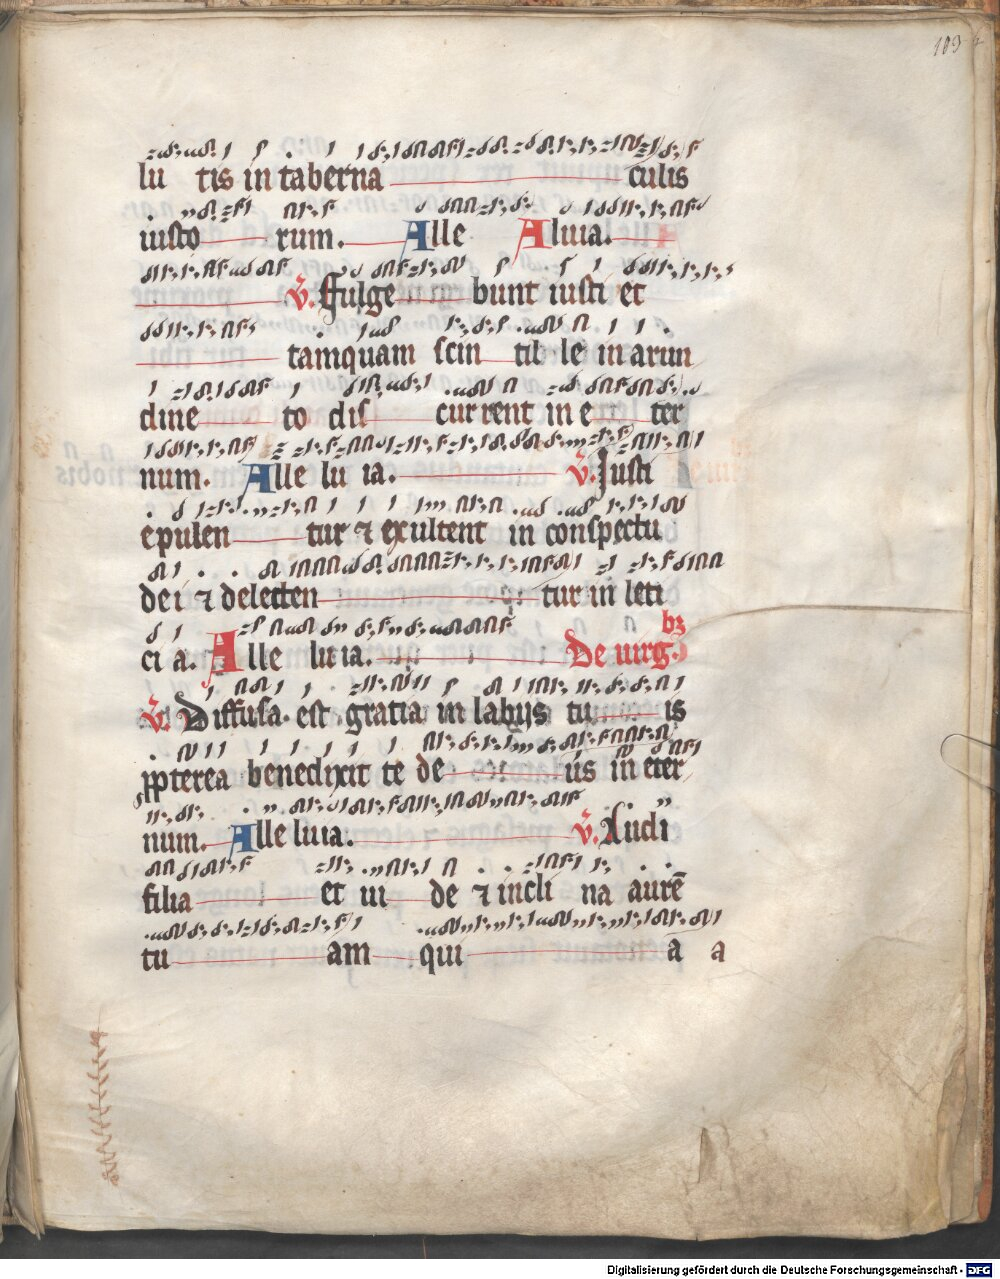 103
lu tis in taberna culis
iusto rum. Alle Aluia.
V. Fulge bunt iusti et
tamquam scin til le in arun
dine to dis current in e ter
num. Alle lu ia. V. Iusti
epulen tur ⁊ exultent in conspectu
dei ⁊ delecten tur in leti
ci a. Alle lu ia. De uirg. bz
V. Diffusa est gratia in labijs tu is
ꝓpterea benedixit te de us in eter
num. Alle luia. V. Audi
filia et ui de ⁊ incli na aurē
tu am qui a a
Digitalisierung gefördert durch die Deutsche Forschungsgemeinschaft - DFG